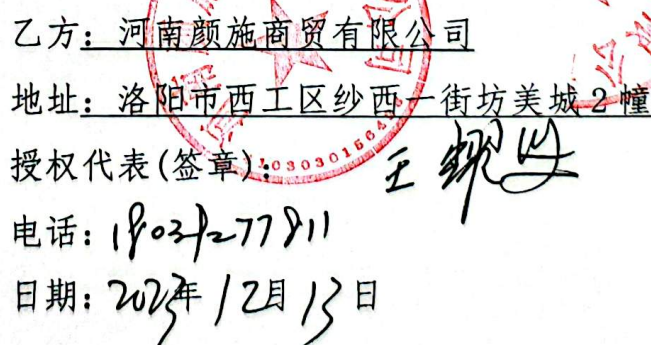 乙方：河南颜施商贸有限公司
地址：洛阳市西工区纱西一街坊美城2幢
授权代表(签章)：王
电话：18039277811
日期：2023年12月13日